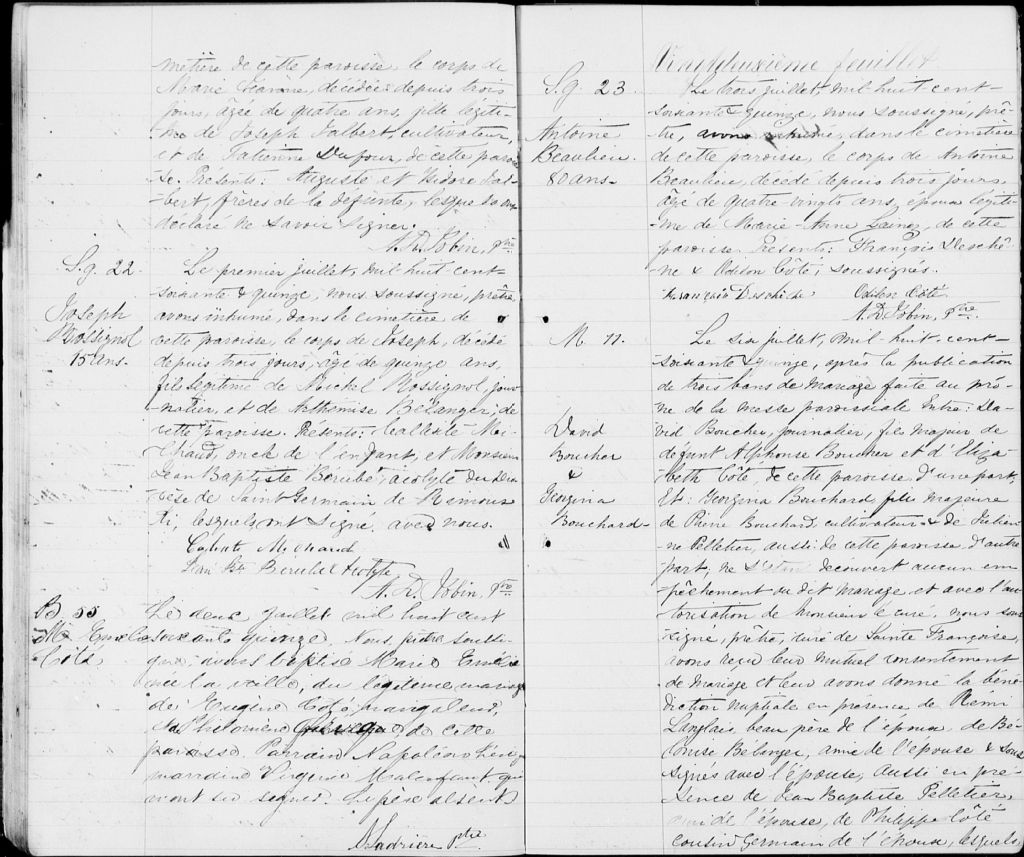 metière de cette paroisse, le corps de
Marie Jeanne, décédée depuis trois
jours, âgée de quatre ans, fille légiti-
me de Joseph Talbert, cultivateur,
et de Tatienne Dufour, de cette parois-
se. Présents: Auguste et Isidore Tal-
bert, frères de la défunte, lesquels ont
déclaré ne savoir signer.
A. D. Jobin, Ptre
S.g. 22.
Joseph
Rossignol
15 ans.
Le premier juillet, mil huit cent-
soixante & quinze, nous soussigné, prêtre
avons inhumé, dans le cimetière de
cette paroisse, le corps de Joseph, décédé
depuis trois jours, âgé de quinze ans,
fils légitime de Michel Rossignol, jour-
nalier, et de Arthémise Bélanger, de
cette paroisse. Présents: Calixte Mi-
chaud, oncle de l'enfant, et Monsieur
Jean Baptiste Bérubé, acolyte du Dio-
cèse de Saint Germain de Rimous-
ki, lesquels ont signé avec nous.
Calixte Michaud
Jean Bte Bérubé Acolyte
A. D. Jobin, Ptre
B 55
M. Emélie
Côté
Le deux Juillet mil huit cent
soixante quinze Nous prêtre soussi-
gné avons baptisé Marie Emélie
née la veille, du légitime mariage
de Eugène Côté
de Philomène de cette
paroisse Parrain Napoléon
marraine Virginie Malenfant qui
n'ont su signer. Le père absent
N. Ladrière Ptre
Vingt deuxième feuillet
S.g. 23.
Antoine
Beaulieu.
80 ans.
Le trois juillet, mil huit cent-
soixante & quinze, nous soussigné, prê-
tre, avons inhumé, dans le cimetière
de cette paroisse, le corps de Antoine
Beaulieu, décédé depuis trois jours,
âgé de quatre vingts ans, époux légiti-
me de Marie-Anne Laine, de cette
paroisse. Présents: François Deschê-
ne & Odilon Côté, soussignés.
François Deschêne Odilon Côté
A. D. Jobin, Ptre
M. 11.
David
Boucher
&
Georgina
Bouchard
Le six juillet, mil huit cent-
soixante & quinze, après la publication
de trois bans de mariage faite au prô-
ne de la messe paroissiale Entre: Da-
vid Boucher, journalier, fils majeur de
défunt Alphonse Boucher et d'Eliza-
beth Côté, de cette paroisse, d'une part,
Et: Georgina Bouchard, fille majeure
de Pierre Bouchard, cultivateur & de Julien-
ne Pelletier, aussi de cette paroisse, d'autre
part, ne s'étant découvert aucun em-
pêchement au dit mariage et avec l'au-
torisation de Monsieur le curé, nous sous-
signé, prêtre, curé de Sainte Françoise,
avons reçu leur mutuel consentement
de mariage et leur avons donné la béné-
diction nuptiale en présence de Rémi
Langlais beau père de l'époux de
Louise Bélanger, amie de l'épouse & sous-
signés avec l'épouse, aussi en pré-
sence de Jean Baptiste Pelletier,
ami de l'épouse, de Philippe Côté
cousin Germain de l'époux, lesquels